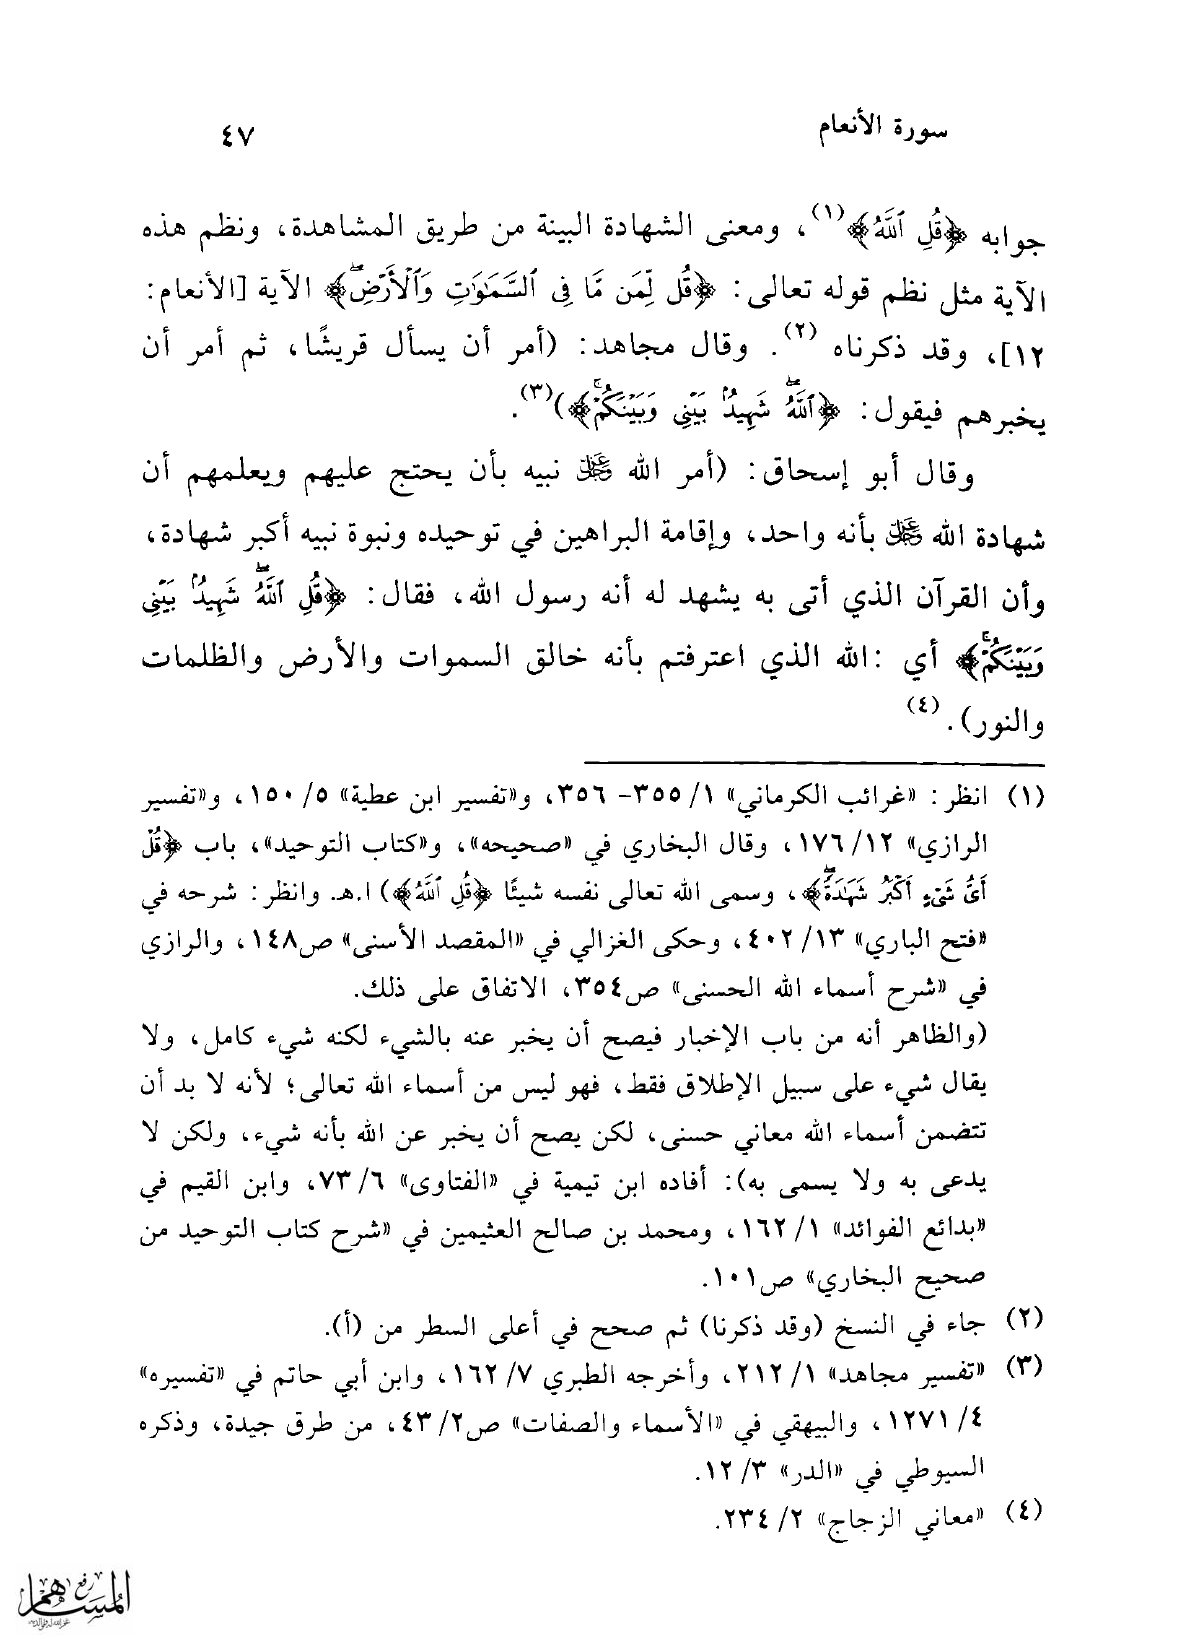 سورة الأنعام ٤٧
جوابه ﴿قُلِ ٱللَّهُ﴾(١)، ومعنى الشهادة البينة من طريق المشاهدة، ونظم هذه
الآية مثل نظم قوله تعالى: ﴿قُل لِّمَن مَّا فِى ٱلسَّمَٰوَٰتِ وَٱلْأَرْضِۖ﴾ الآية [الأنعام:
١٢]، وقد ذكرناه (٢). وقال مجاهد: (أمر أن يسأل قريشًا، ثم أمر أن
يخبرهم فيقول: ﴿ٱللَّهُۖ شَهِيدُۢ بَيْنِى وَبَيْنَكُمْۚ﴾)(٣).
وقال أبو إسحاق: (أمر الله ﷿ نبيه بأن يحتج عليهم ويعلمهم أن
شهادة الله ﷿ بأنه واحد، وإقامة البراهين في توحيده ونبوة نبيه أكبر شهادة،
وأن القرآن الذي أتى به يشهد له أنه رسول الله، فقال: ﴿قُلِ ٱللَّهُۖ شَهِيدُۢ بَيْنِى
وَبَيْنَكُمْۚ﴾ أي :الله الذي اعترفتم بأنه خالق السموات والأرض والظلمات
والنور). (٤)
(١) انظر: «غرائب الكرماني» ١/ ٣٥٥- ٣٥٦، و«تفسير ابن عطية» ٥/ ١٥٠، و«تفسير
الرازي» ١٢/ ١٧٦، وقال البخاري في «صحيحه»، و«كتاب التوحيد»، باب ﴿قُلْ
أَىُّ شَىْءٍ أَكْبَرُ شَهَٰدَةًۖ﴾، وسمى الله تعالى نفسه شيئًا ﴿قُلِ ٱللَّهُ﴾) ا.هـ. وانظر: شرحه في
«فتح الباري» ١٣/ ٤٠٢، وحكى الغزالي في «المقصد الأسنى» ص١٤٨، والرازي
في «شرح أسماء الله الحسنى» ص٣٥٤، الاتفاق على ذلك.
(والظاهر أنه من باب الإخبار فيصح أن يخبر عنه بالشيء لكنه شيء كامل، ولا
يقال شيء على سبيل الإطلاق فقط، فهو ليس من أسماء الله تعالى؛ لأنه لا بد أن
تتضمن أسماء الله معاني حسنى، لكن يصح أن يخبر عن الله بأنه شيء، ولكن لا
يدعى به ولا يسمى به): أفاده ابن تيمية في «الفتاوى» ٦/ ٧٣، وابن القيم في
«بدائع الفوائد» ١/ ١٦٢، ومحمد بن صالح العثيمين في «شرح كتاب التوحيد من
صحيح البخاري» ص١٠١.
(٢) جاء في النسخ (وقد ذكرنا) ثم صحح في أعلى السطر من (أ).
(٣) «تفسير مجاهد» ١/ ٢١٢، وأخرجه الطبري ٧/ ١٦٢، وابن أبي حاتم في «تفسيره»
٤/ ١٢٧١، والبيهقي في «الأسماء والصفات» ص٢/ ٤٣، من طرق جيدة، وذكره
السيوطي في «الدر» ٣/ ١٢.
(٤) «معاني الزجاج» ٢/ ٢٣٤.